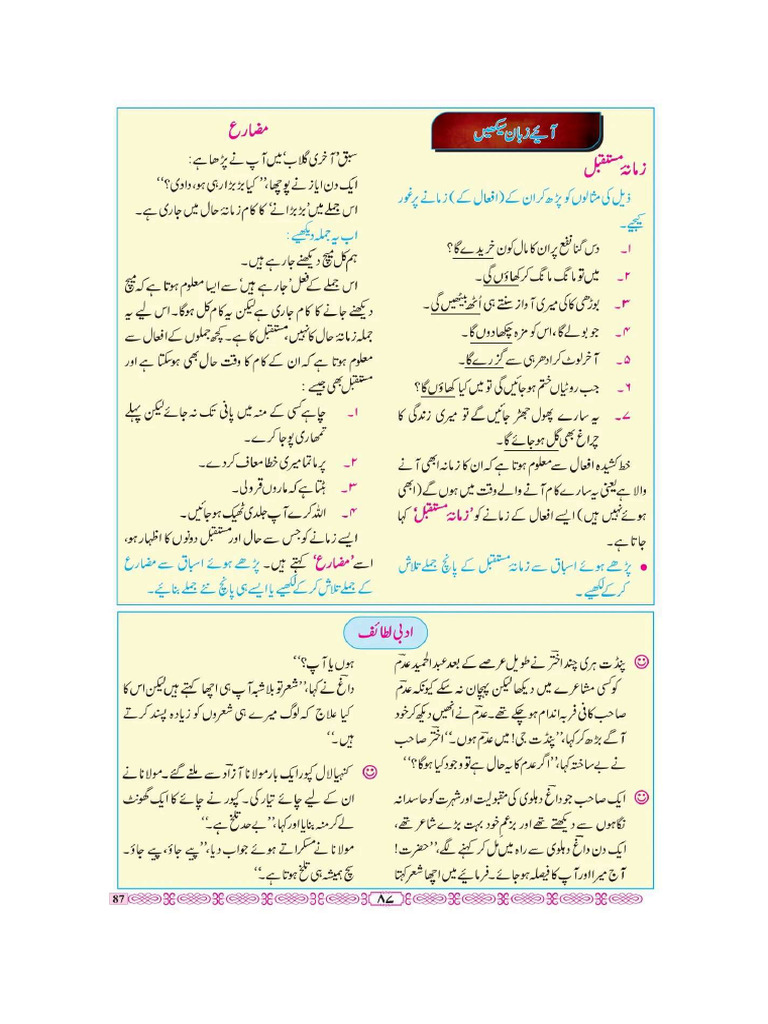 آیئے زبان سیکھیں
زمانۂ مستقبل
ذیل کی مثالوں کو پڑھ کر ان کے (افعال کے) زمانے پر غور
کیجیے۔
۱۔ دس گنا نفع پر ان کا مال کون خریدے گا؟
۲۔ میں تو مانگ مانگ کر کھاؤں گی۔
۳۔ بوڑھی کاکی میری آواز سنتے ہی اُٹھ بیٹھیں گی۔
۴۔ جو بولے گا، اس کو مزہ چکھا دوں گا۔
۵۔ آخر لوٹ کر ادھر ہی سے گزرے گا۔
۶۔ جب روٹیاں ختم ہو جائیں گی تو میں کیا کھاؤں گا؟
۷۔ یہ سارے پھول جھڑ جائیں گے تو میری زندگی کا
چراغ بھی گل ہو جائے گا۔
خط کشیدہ افعال سے معلوم ہوتا ہے کہ ان کا زمانہ ابھی آنے
والا ہے یعنی یہ سارے کام آنے والے وقت میں ہوں گے (ابھی
ہوئے نہیں ہیں) ایسے افعال کے زمانے کو ’زمانۂ مستقبل‘ کہا
جاتا ہے۔
● پڑھے ہوئے اسباق سے زمانۂ مستقبل کے پانچ جملے تلاش
کر کے لکھیے۔
مضارع
سبق ’آخری گلاب‘ میں آپ نے پڑھا ہے:
ایک دن ایاز نے پوچھا، ’’کیا بڑبڑا رہی ہو، دادی؟‘‘
اس جملے میں ’بڑبڑانے‘ کا کام زمانۂ حال میں جاری ہے۔
اب یہ جملہ دیکھیے:
ہم کل میچ دیکھنے جا رہے ہیں۔
اس جملے کے فعل ’جا رہے ہیں‘ سے ایسا معلوم ہوتا ہے کہ میچ
دیکھنے جانے کا کام جاری ہے لیکن یہ کام کل ہوگا۔ اس لیے یہ
جملہ زمانۂ حال کا نہیں، مستقبل کا ہے۔ کچھ جملوں کے افعال سے
معلوم ہوتا ہے کہ ان کے کام کا وقت حال بھی ہو سکتا ہے اور
مستقبل بھی جیسے:
۱۔ چاہے کسی کے منہ میں پانی تک نہ جائے لیکن پہلے
تمھاری پوجا کرے۔
۲۔ پرماتما میری خطا معاف کر دے۔
۳۔ ہٹتا ہے کہ ماروں قرولی۔
۴۔ اللہ کرے آپ جلدی ٹھیک ہو جائیں۔
ایسے زمانے کو جس سے حال اور مستقبل دونوں کا اظہار ہو،
اسے ’مضارع‘ کہتے ہیں۔ پڑھے ہوئے اسباق سے مضارع
کے جملے تلاش کر کے لکھیے یا ایسے ہی پانچ نئے جملے بنائیے۔
ادبی لطائف
پنڈت ہری چند اختر نے طویل عرصے کے بعد عبدالحمید عدم
کو کسی مشاعرے میں دیکھا لیکن پہچان نہ سکے کیونکہ عدم
صاحب کافی فربہ اندام ہو چکے تھے۔ عدم نے انھیں دیکھ کر خود
آگے بڑھ کر کہا، ’’پنڈت جی! میں عدم ہوں۔‘‘ اختر صاحب
نے بے ساختہ کہا، ’’اگر عدم کا یہ حال ہے تو وجود کیا ہوگا؟‘‘
ایک صاحب جو داغ دہلوی کی مقبولیت اور شہرت کو حاسدانہ
نگاہوں سے دیکھتے تھے اور بزعمِ خود بہت بڑے شاعر تھے،
ایک دن داغ دہلوی سے راہ میں مل کر کہنے لگے، ’’حضرت!
آج میرا اور آپ کا فیصلہ ہو جائے۔ فرمائیے میں اچھا شعر کہتا
ہوں یا آپ؟‘‘
داغ نے کہا، ’’شعر تو بلاشبہ آپ ہی اچھا کہتے ہیں لیکن اس کا
کیا علاج کہ لوگ میرے ہی شعروں کو زیادہ پسند کرتے
ہیں۔‘‘
کنہیا لال کپور ایک بار مولانا آزاد سے ملنے گئے۔ مولانا نے
ان کے لیے چائے تیار کی۔ کپور نے چائے کا ایک گھونٹ
لے کر منہ بنایا اور کہا، ’’بے حد تلخ ہے۔‘‘
مولانا نے مسکراتے ہوئے جواب دیا، ’’پیے جاؤ، پیے جاؤ۔
سچ ہمیشہ ہی تلخ ہوتا ہے۔‘‘
87
۸۷